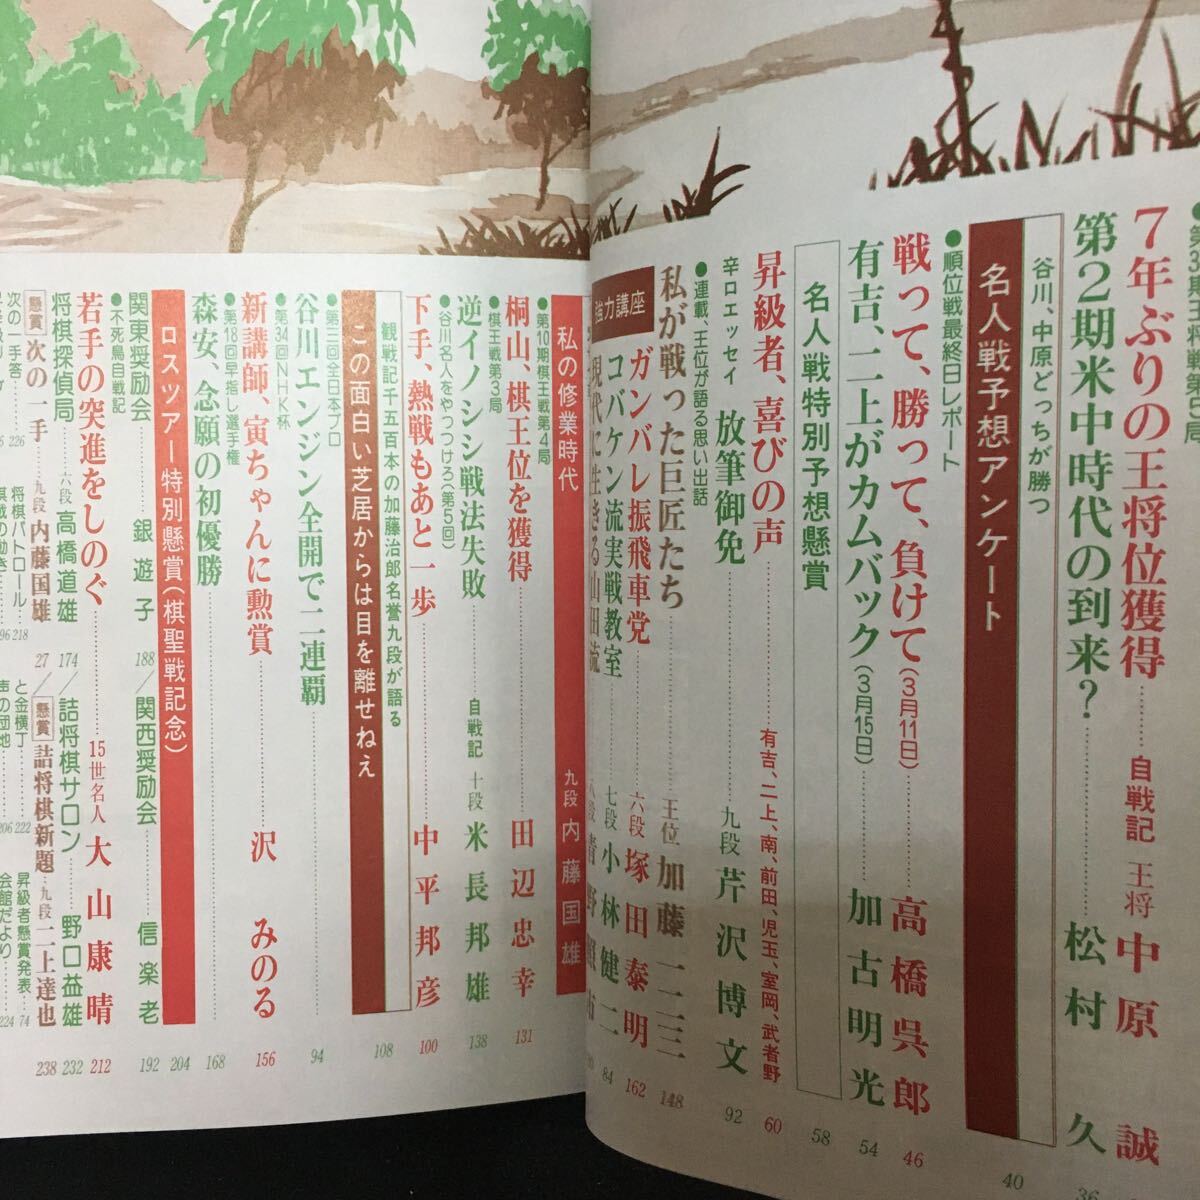 7年ぶりの王将位獲得 自戦記 王将 中原 誠
第2期米中時代の到来? 松村 久 36
谷川、中原どっちが勝つ
名人戦予想アンケート 40
●順位戦最終日レポート
戦って、勝って、負けて(3月11日) 高橋呉郎 46
有吉、二上がカムバック(3月15日) 加古明光 54
名人戦特別予想懸賞 58
昇級者、喜びの声 有吉、二上、南、前田、児玉、室岡、武者野 60
辛口エッセイ 放筆御免 九段 芹沢博文 92
●連載、王位が語る思い出話
私が戦った巨匠たち 王位 加藤一二三 148
強力講座
ガンバレ振飛車党 六段 塚田泰明 162
コバケン流実戦教室 七段 小林健二 84
現代に生きる山田流 八段 青野照市
私の修業時代 九段 内藤国雄
●第10期棋王戦第4局
桐山、棋王位を獲得 田辺忠幸 131
●棋王戦第3局
逆イノシシ戦法失敗 自戦記 十段 米長邦雄 138
●谷川名人をやっつけろ(第5回)
下手、熱戦もあと一歩 中平邦彦 100
観戦記千五百本の加藤治郎名誉九段が語る
この面白い芝居からは目を離せねえ 108
●第三回全日本プロ
谷川エンジン全開で二連覇 94
●第34回NHK杯
新講師、寅ちゃんに勲賞 沢 みのる 156
●第18回早指し選手権
森安、念願の初優勝 168
ロスツアー特別懸賞(棋聖戦記念) 204
関東奨励会 銀遊子 188/関西奨励会 信楽老 192
●不死鳥自戦記
若手の突進をしのぐ 15世名人 大山康晴 212
将棋探偵局 六段 高橋道雄 174/詰将棋サロン 野口益雄 232
懸賞 次の一手 九段 内藤国雄 27/懸賞 詰将棋新題 九段 二上達也 238
次の一手答 226 将棋パトロール 218 と金横丁 222 昇級者懸賞発表 74
棋戦の動き 96 声の団地 206 会館だより 224